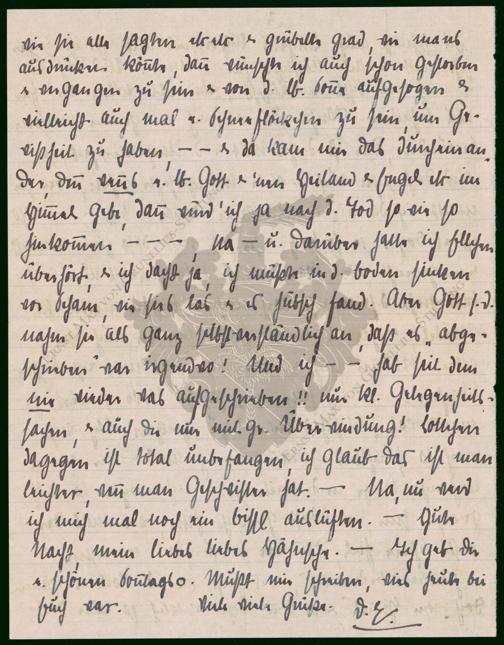 wie sie alle sagten etc etc & grübelte grad, wie mans
ausdrücken könte, dañ wünschte ich auch schon gestorben
& vergangen zu sein & von d. lb. Soñe aufgesogen &
vielleicht auch mal e. Schneeflöckchen zu sein, um Ge-
wißheit zu haben, — — & da kam mir das Durcheinan-
der, deñ weñs e. lb. Gott & 'nen Heiland & Engel etc im
Himmel gebe, dañ würd' ich ja nach d. Tod so wie so
hinkommen — — —, Na — u. darüber hatte ich
überhört, & ich dacht ja, ich müßte in d. Boden sinken
vor Scham, wie sies las & es hübsch fand. Aber Gott s. d.
nahm sie als ganz selbstverständlich an, daß es „abge-
schrieben" war irgendwo! Und ich — — hab seit dem
nie wieder was aufgeschrieben!! nur kl. Gelegenheits-
sachen, & auch die nur mit gr. Überwindung! Lottchen
dagegen ist total unbefangen, ich glaub das ist man
leichter, weñ man Geschwister hat. — Na, nu werd
ich mich mal noch ein bissl auslüften. — Gute
Nacht, mein liebes liebes — Ich geb dir
e. schönen Sonntags o. Mußt mir schreiben, wies heute bei
Euch war. Viele viele Grüße. D. E.